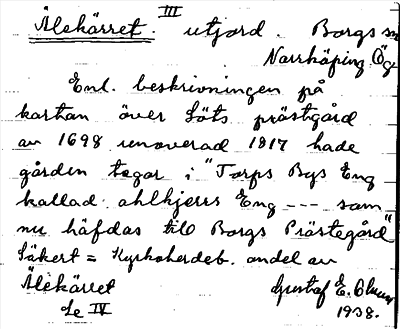 Ålekärret. III utjord. Borgs sn
Norrköping Ög.
Enl. beskrivningen på
kartan över Löts prästgård
av 1698 renoverad 1817 hade
gården tegar i "Torps Bys Eng
kallad ahlkjerrs Eng --- som
nu häfdas till Borgs Prästegård"
Säkert = Kyrkoherdeb. andel av
Ålekärret Gustaf E.
Le IV 1938.